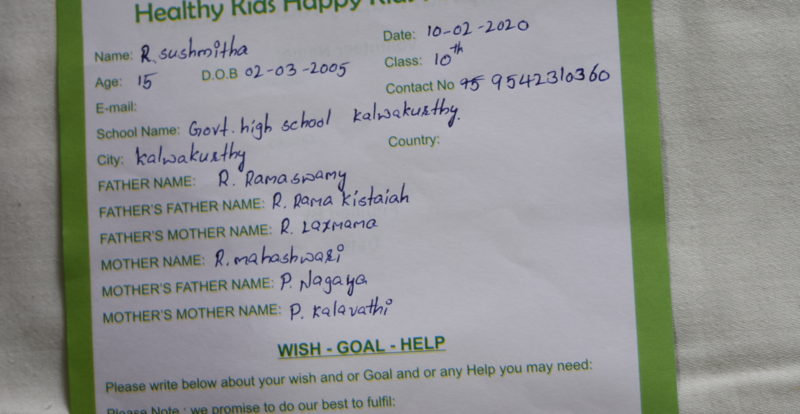 Healthy Kids Happy Kids
Name: R. sushmitha Date: 10-02-2020
Age: 15 D.O.B 02-03-2005 Class: 10th
E-mail: Contact No 95 9542310360
School Name: Govt. high school kalwakurthy.
City: kalwakurthy Country:
FATHER NAME: R. Ramaswamy
FATHER'S FATHER NAME: R. Rama kistaiah
FATHER'S MOTHER NAME: R. Laxmama
MOTHER NAME: R. mahashwari
MOTHER'S FATHER NAME: P. Nagaya
MOTHER'S MOTHER NAME: P. kalavathi
WISH - GOAL - HELP
Please write below about your wish and or Goal and or any Help you may need:
Please Note : we promise to do our best to fulfil: